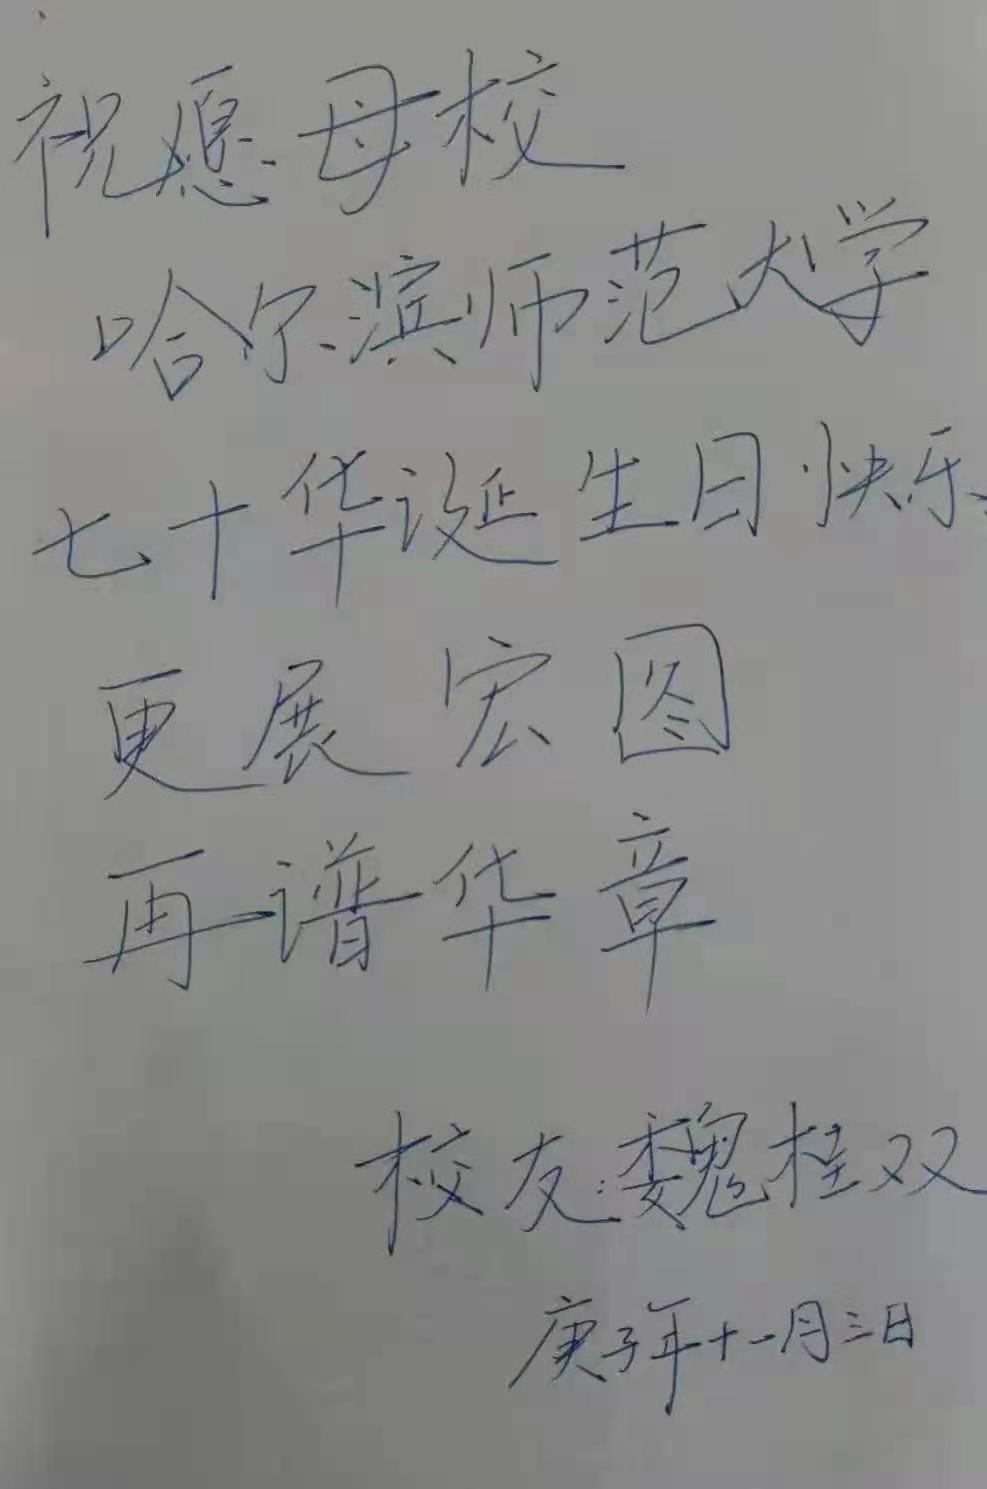 祝愿母校
哈尔滨师范大学
七十华诞生日快乐
更展宏图
再谱华章
校友:魏桂双
庚子年十一月三日